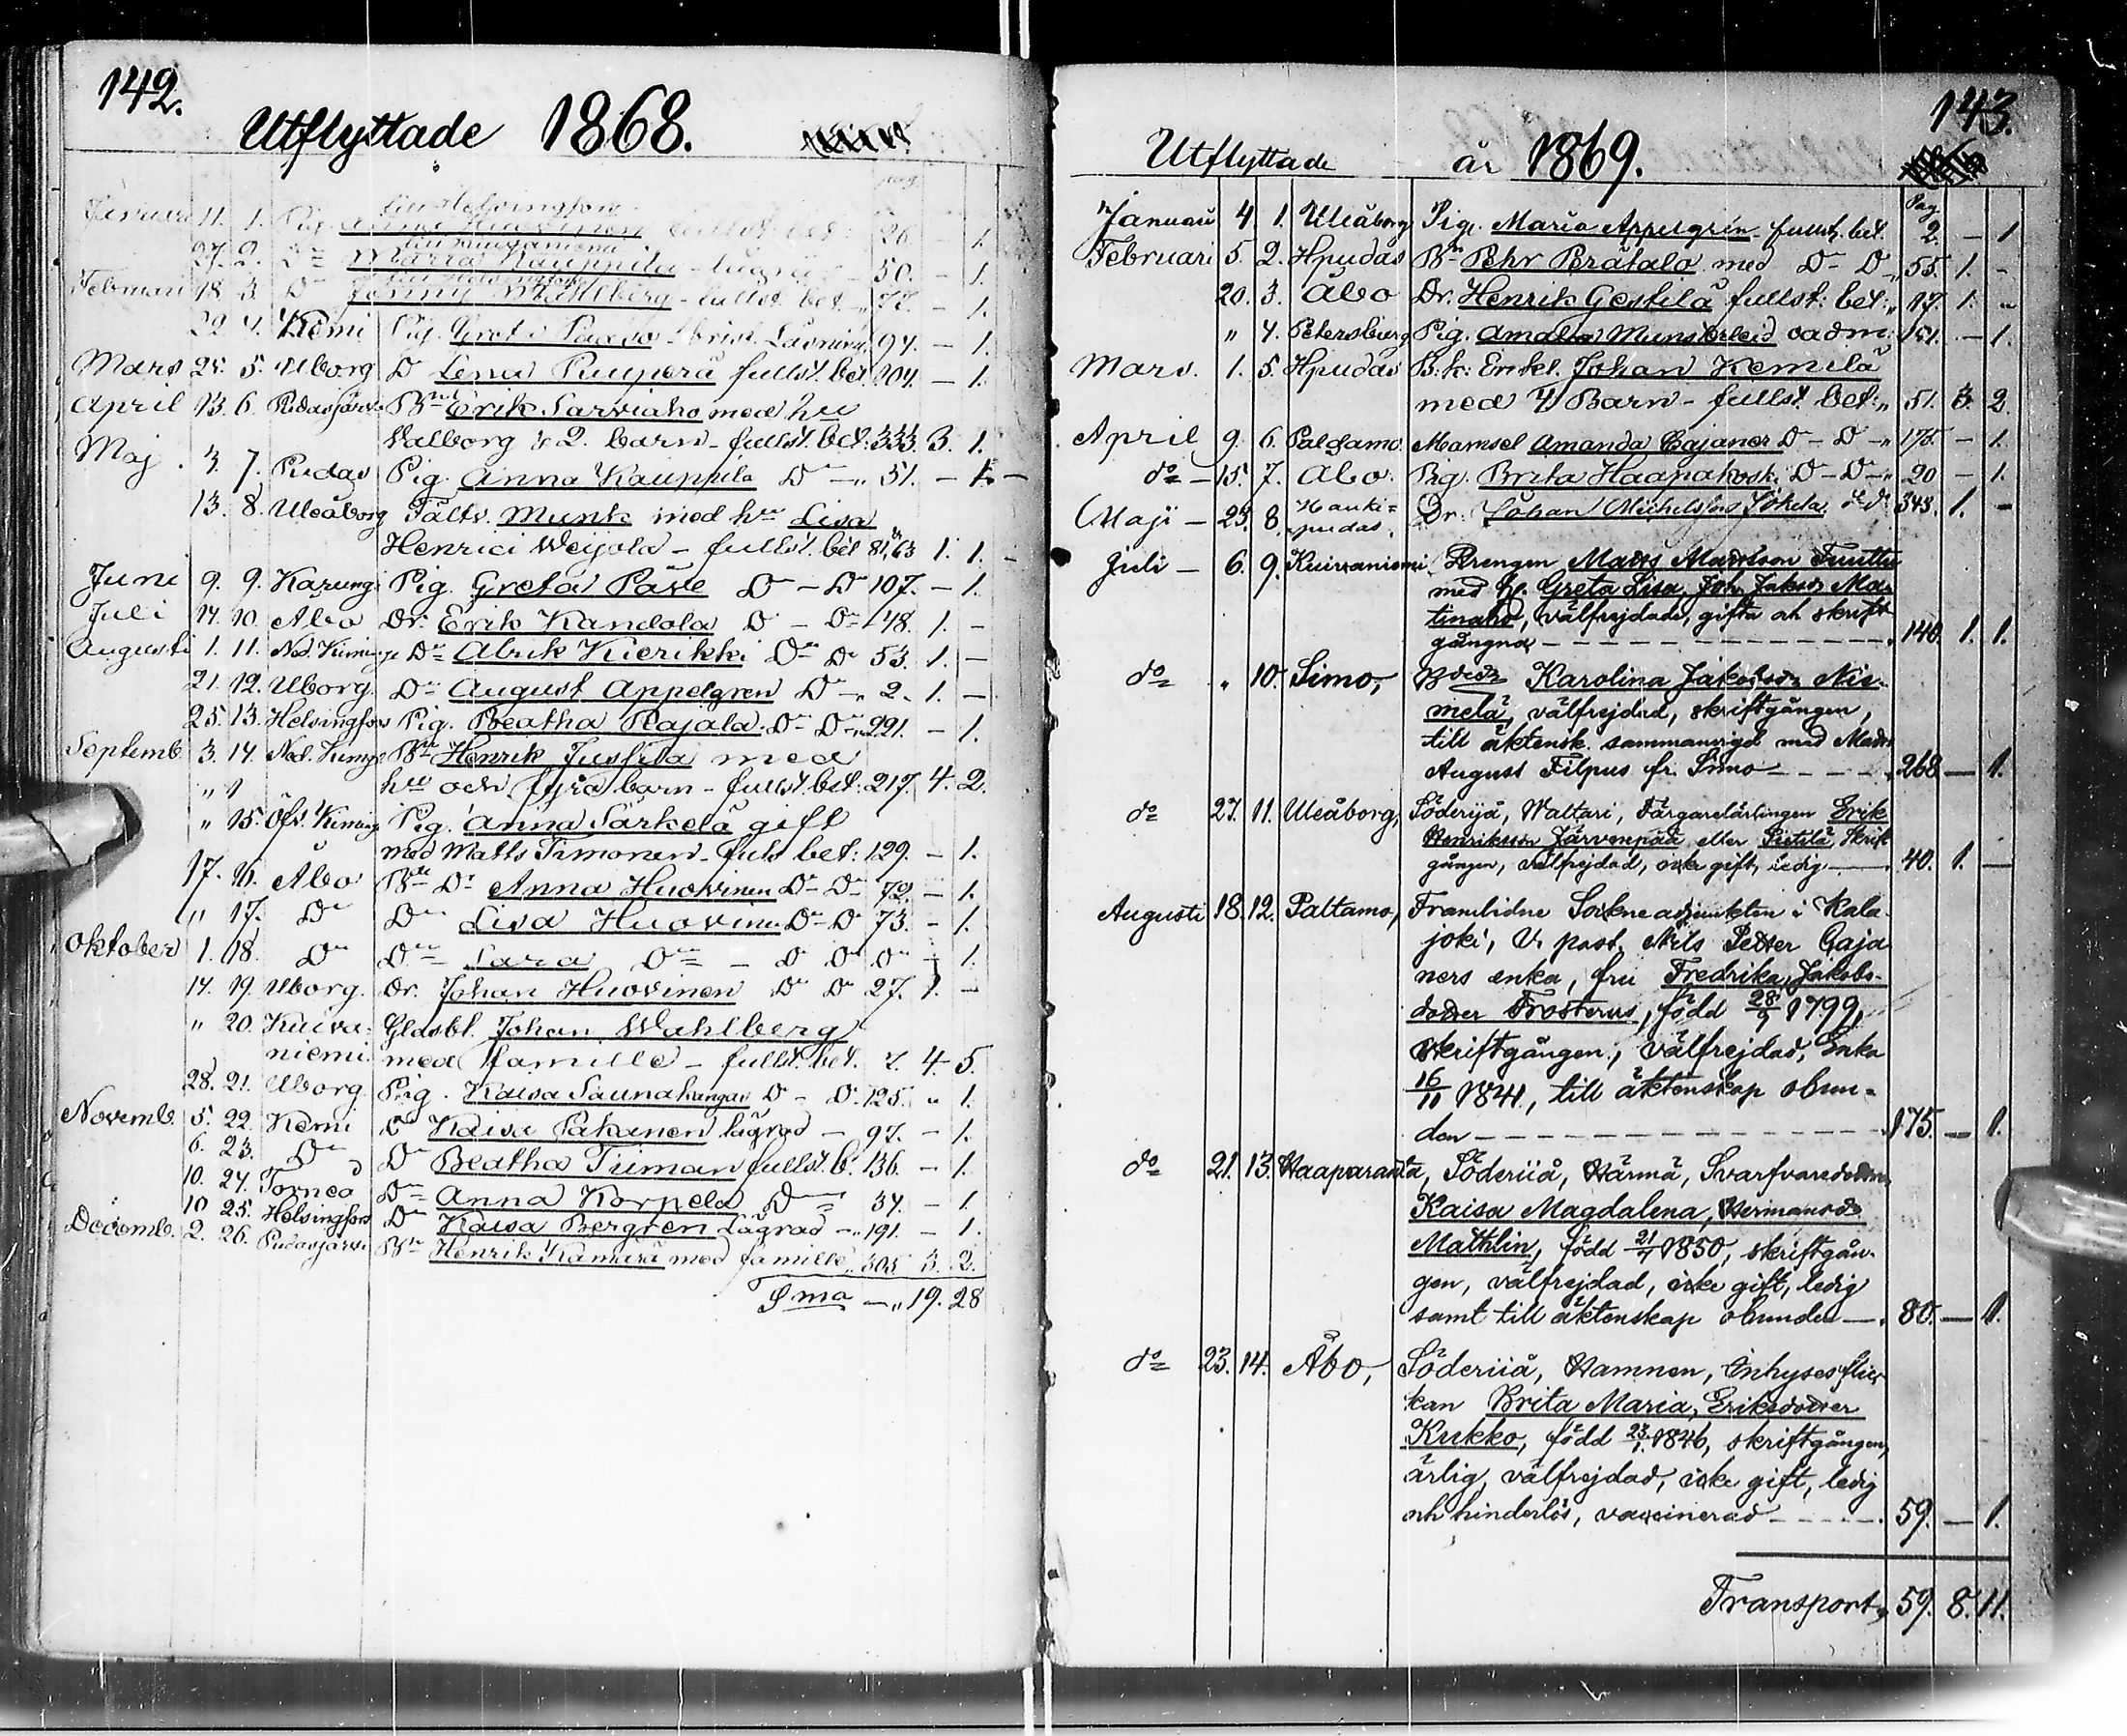 142.
Utflyttade 1868.
pag.
till Helsingfors
Januari 11. 1. Pig. Anna Huovinen fullst. bet: 26. 1.
27. 2. Dn Maria Kauppila - lågrad - 50. - 1.
Februari 18. 3. Dn Fanny Wahlberg - fullst. bet. 77. - 1.
29. 4. Kemi Pig. Greta Paaso 94. - 1.
Mars 25. 5. Uborg D Lena Puuperä fullst. bet. 104. - 1.
April 13. 6. Pudasjärvi Bn Erik Sarviaho med hu
Walborg & 2. barn - fullst. bet: 333. 3. 1.
Maj. 3. 7. Pudas Pig. Anna Kauppila D - „ 51. - 1. -
13. 8. Uleåborg Fältv. Munk med hu Lisa
Henrici Weijola - fullst. bet 81, 63 1. 1. -
Juni 9. 9. Karungi Pig. Greta Päve D - D 107. - 1.
Juli 14. 10. Åbo Dr. Erik Kandola D - D 48. 1. -
Augusti 1. 11. Ned. Kiminge Dn Abrik Kierikki Dn D 53. 1. -
21. 12. Uborg. Dn August Appelgren D - „ 2. 1. -
25. 13. Helsingfors Pig. Beatha Rajala. D - D - „ 221. - 1.
Septemb. 3. 14. Ned. Kiminge Bn Henrik Jussila med
„ „ hu och fyra barn - fullst. bet: 217. 4. 2.
„ 15. Öfv. Kiminge Pig. Anna Särkelä gift
med Matts Timonen - fuls bet: 129. - 1.
17. 16. Åbo Bde Dr Anna Huovinen D - D - 72. - 1.
„ 17. Dn Dn Lisa Huovinen D - D 73. - 1.
Oktober 1. 18. Dn Dn Sara Dn - D Dn Dn - 1.
14. 19. Uborg. Dr. Johan Huovinen Dn Dn 27. 1. -
„ 20. Kuiva- Glasbl. Johan Wahlberg
niemi. med familie - fullst. bet. 7. 4. 5.
28. 21. Uborg. Pig. Kaisa Saunakangas D - D. 125. „ 1.
Novemb. 5. 22. Kemi Dn Kaisa Pakanen lågrad - 97. - 1.
6. 23. Dn Dn Beatha Tiiman fullst. b. 136. - 1.
10. 24. Torneå Dn Anna Korpela D 34. - 1.
10 25. Helsingfors Dn Kaisa Bergren Lågrad - „ 191. - 1.
Decemb. 2. 26. Pudasjärvi Bn Henrik Kamara med familie „ 305. 3. 2.
Sma - „ 19. 28
143.
Utflyttade år 1869.
Pag
Januari 4. 1. Uleåborg Pig. Maria Appelgrén - fullst. bet. 2. - 1
Februari 5. 2. Hpudas Bn Pehr Perätalo med D - D - „ 55. 1. -
20. 3. Åbo Dr. Henrik Gestilä fullst: bet: „ 17. 1. „
„ 4. Petersburg Pig. Amalia Munsterleid oadm: 151. - 1.
Mars. 1. 5. Hpudas B:k: Enkel. Johan Kemilä
med 4 Barn - fullst. bet: „ 51. 3. 2.
April 9. 6. Paldamo. Mamsel Amanda Cajaner D - D - „ 175. - 1.
do - 15. 7. Åbo. Pig. Brita Haapakoski D - D - „ 20 - 1.
Maji - 29. 8. Hauki=
pudas. Dr. Johan Michelsson Jokela, D D. 343. 1. -
Juli - 6. 9. Kuivaniemi Drengen Matts Mattsson Tuuttu
med h. Greta Lisa, Joh. Jakobs. Mar-
tinaho, välfrejdade, gifta och skrift-
gångna 140. 1. 1.
do „ 10. Simo, Karolina Jakobsdr. Nie-
melä, välfrejdad, skriftgången,
till äktensk. sammanvigd med Matts
August Filpus fr. Simo - 268. - 1.
do 27. 11. Uleåborg, Söderijå, Waltari, Färgarelärlingen Erik
Henriksson Järvenpää eller Pietilä, skrift-
gången, välfrejdad, icke gift, ledig - 40. 1. -
Augusti 18. 12. Paltamo, Framlidne Sockneadjunkten i Kala-
joki, V. past. Nils Petter Caja-
ners enka, fru Fredrika, Jakobs-
dotter Frosterus, född 28/7 1799,
skriftgången, välfrejdad, Enka
16/11 1841, till äktenskap obun-
den - 175. - 1.
do 21. 13. Haaparanta, Söderiiå, Härmä, Svarfvaredottern
Kaisa Magdalena, Hermansdr
Mathlin, född 21/7 1850, skriftgån-
gen, välfrejdad, icke gift, ledig
samt till äktenskap obunden - 80. - 1.
do 23. 14. Åbo, Söderiiå, Hamnen, Inhysesflic-
kan Brita Maria, Eriksdotter
Kukko, född 23/1 1846, skriftgången,
ärlig, välfrejdad, icke gift, ledig
och hinderlös, vaccinerad - 59. - 1.
Transport, 59. 8. 11.